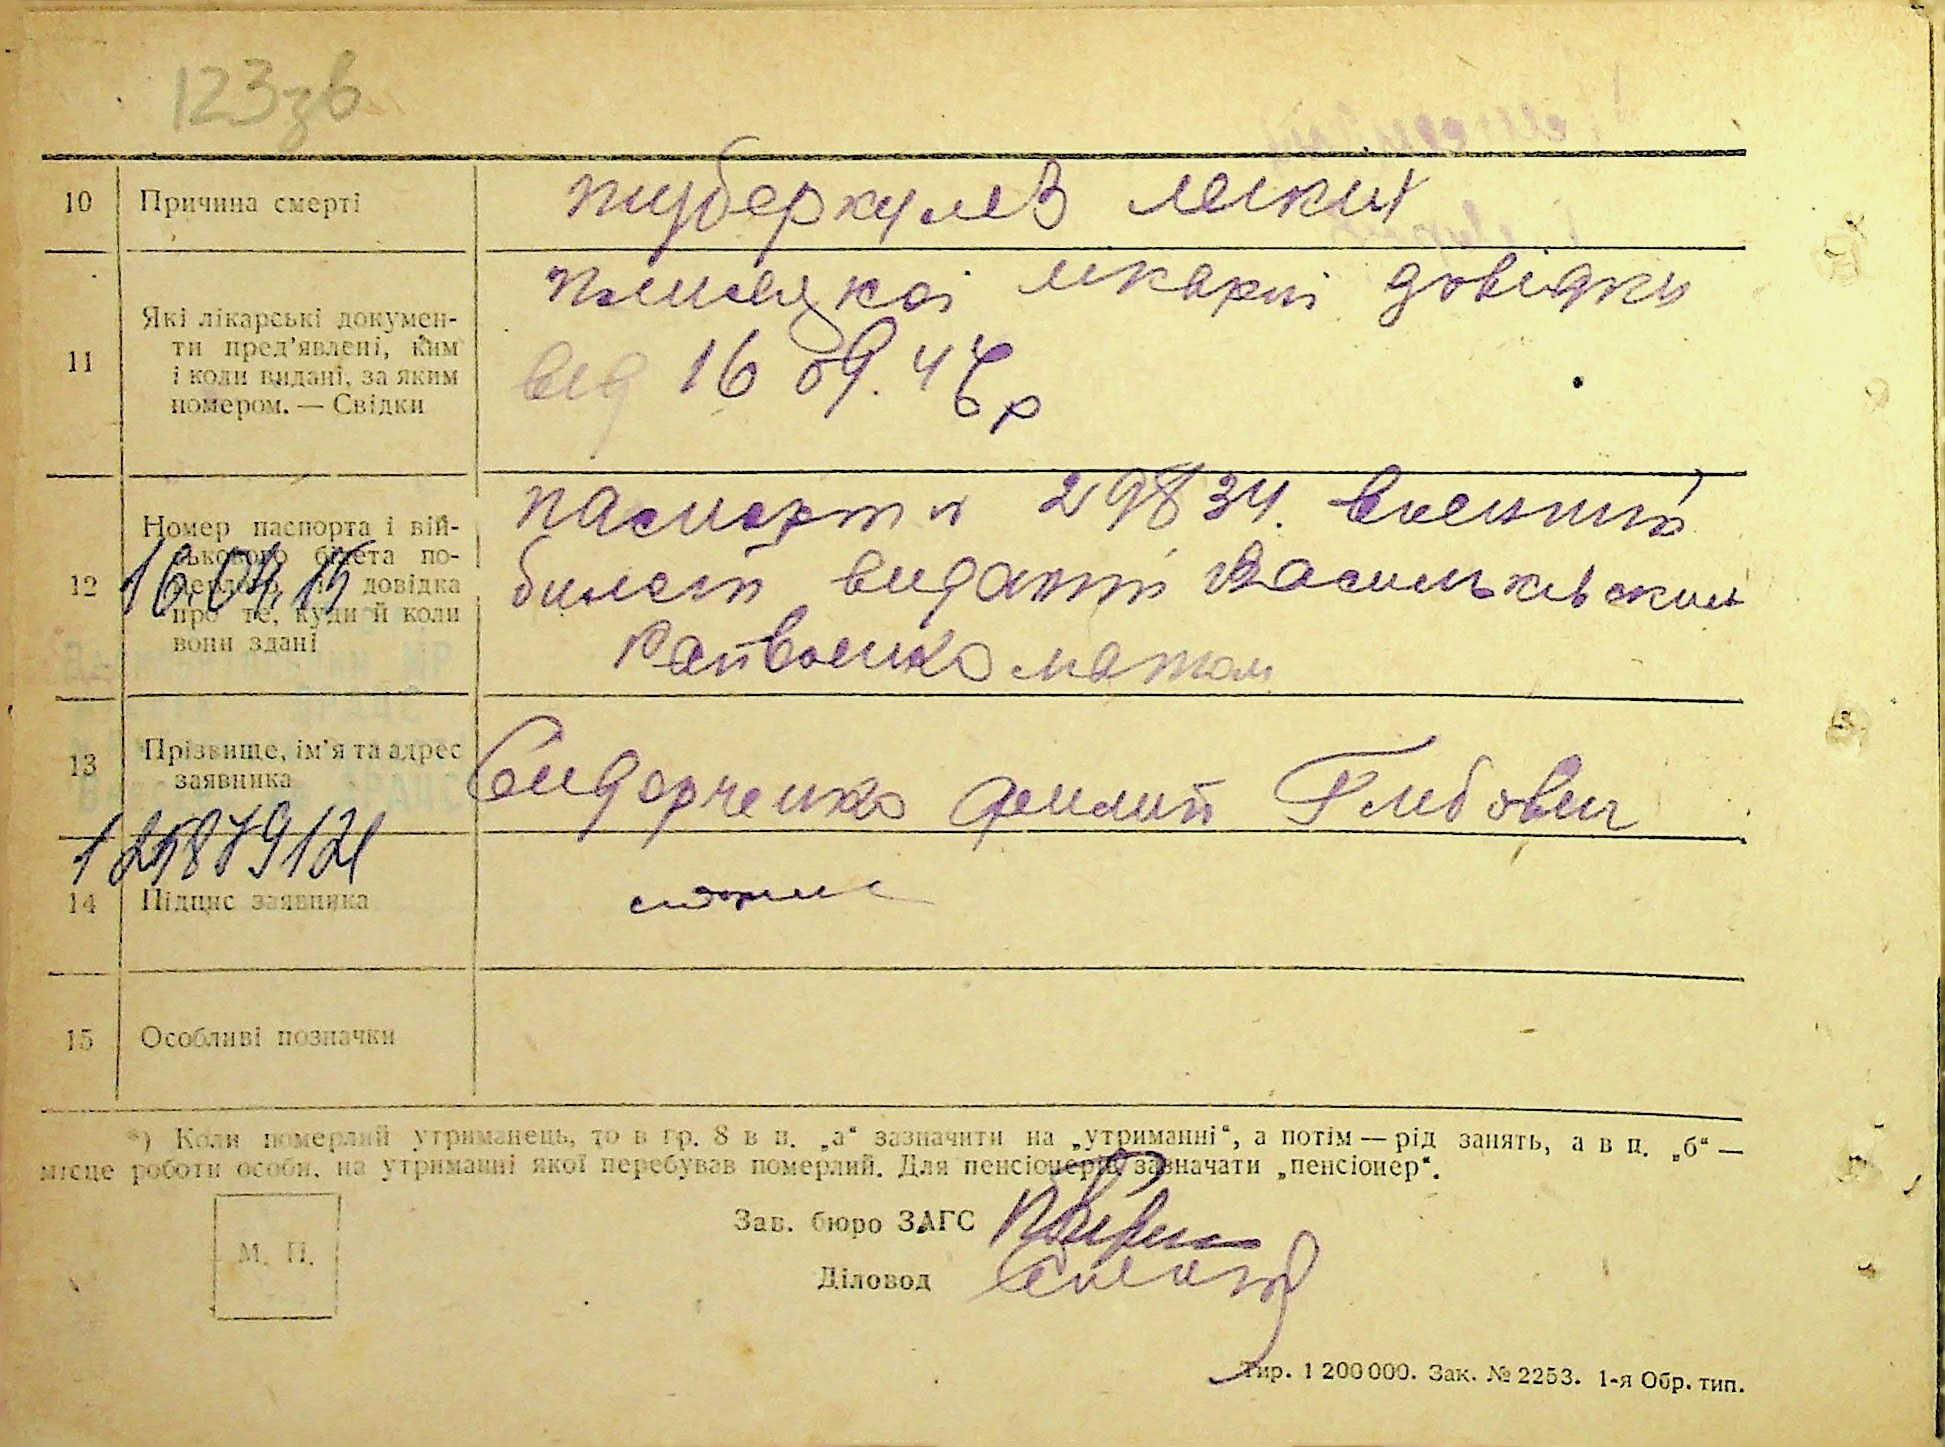 123зв
10 Причина смерті туберкулез легких
11 Які лікарські докумен-
ти пред’явлені, ким
і коли видані, за яким
номером. — Свідки
лікарні довідки
від 16 09. 46 р
12 Номер паспорта і вій-
ськового білета по-
мерлого, довідка
про те, куди й коли
вони здані
паспорт 29834. военний
билет видатні Васильківским
Райвоенкоматом
16.04.15
13 Прізвище, ім’я та адрес
заявника
Сидорченко Филип Глибович
14 Підпис заявника
15 Особливі позначки
*) Коли померлий утриманець, то в гр. 8 в п. „а“ зазначити на „утриманні“, а потім — рід занять, а в п. „б“ —
місце роботи особи, на утриманні якої перебував померлий. Для пенсіонерів зазначати „пенсіонер“.
Зав. бюро ЗАГС
М. П.
Діловод
Тир. 1 200 000. Зак. № 2253. 1-я Обр. тип.